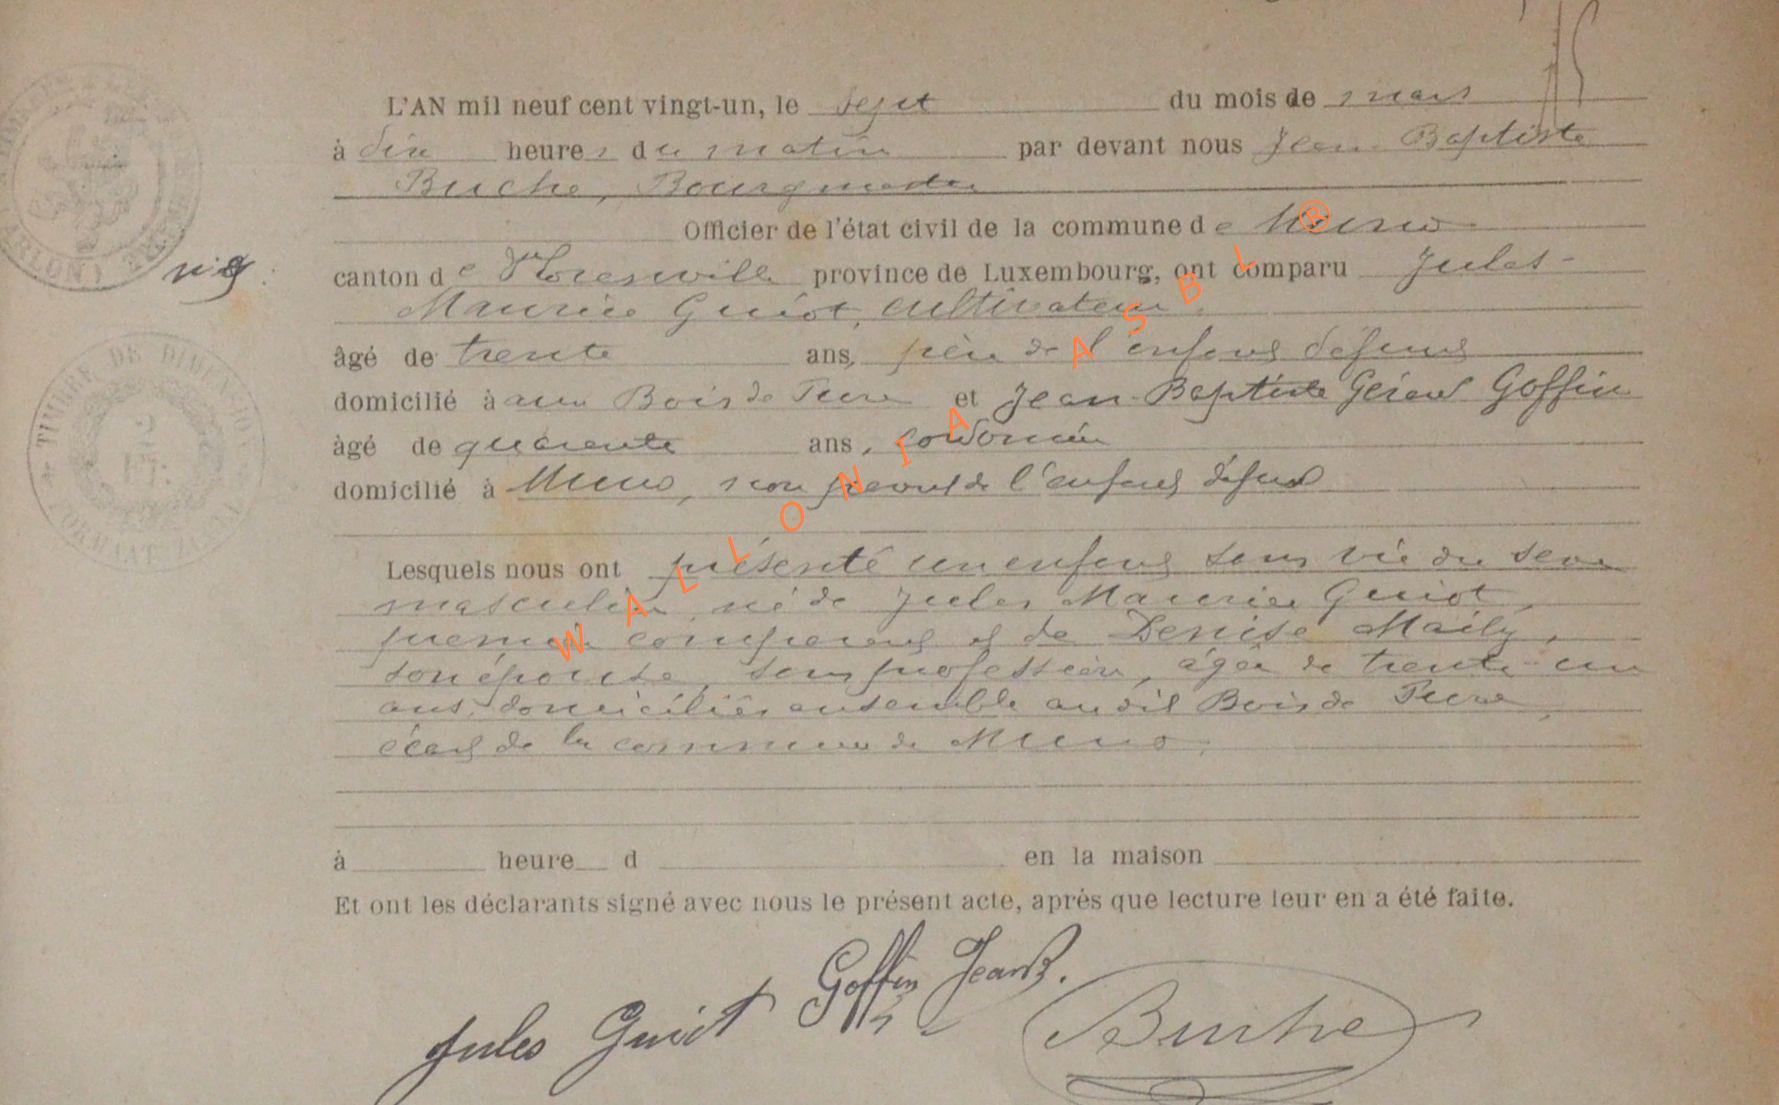 75
L'AN mil neuf cent vingt-un, le sept du mois de mars
à dix heures du matin par devant nous Jean Baptiste
Buche, Bourgmestre
Officier de l'état civil de la commune de Muno
canton de Florenville province de Luxembourg, ont comparu Jules
Maurice Guiot, cultivateur
âgé de trente ans, père de l'enfant défunt
domicilié à au Bois de Pure et Jean-Baptiste Gérard Goffin
âgé de quarante ans, cordonnier
domicilié à Muno, non parent de l'enfant défunt
Lesquels nous ont présenté un enfant sans vie du sexe
masculin, né de Jules Maurice Guiot,
premier comparant et de Denise Maily,
son épouse, sans profession, âgée de trente-un
ans, domiciliés ensemble au dit Bois de Pure,
écart de la commune de Muno.
à heure d en la maison
Et ont les déclarants signé avec nous le présent acte, après que lecture leur en a été faite.
Jules Guiot Goffin Jean B. Buche
n° 9
ARLON
TIMBRE DE DIMENSION
2 FR.
WALLONIA ASBL ®